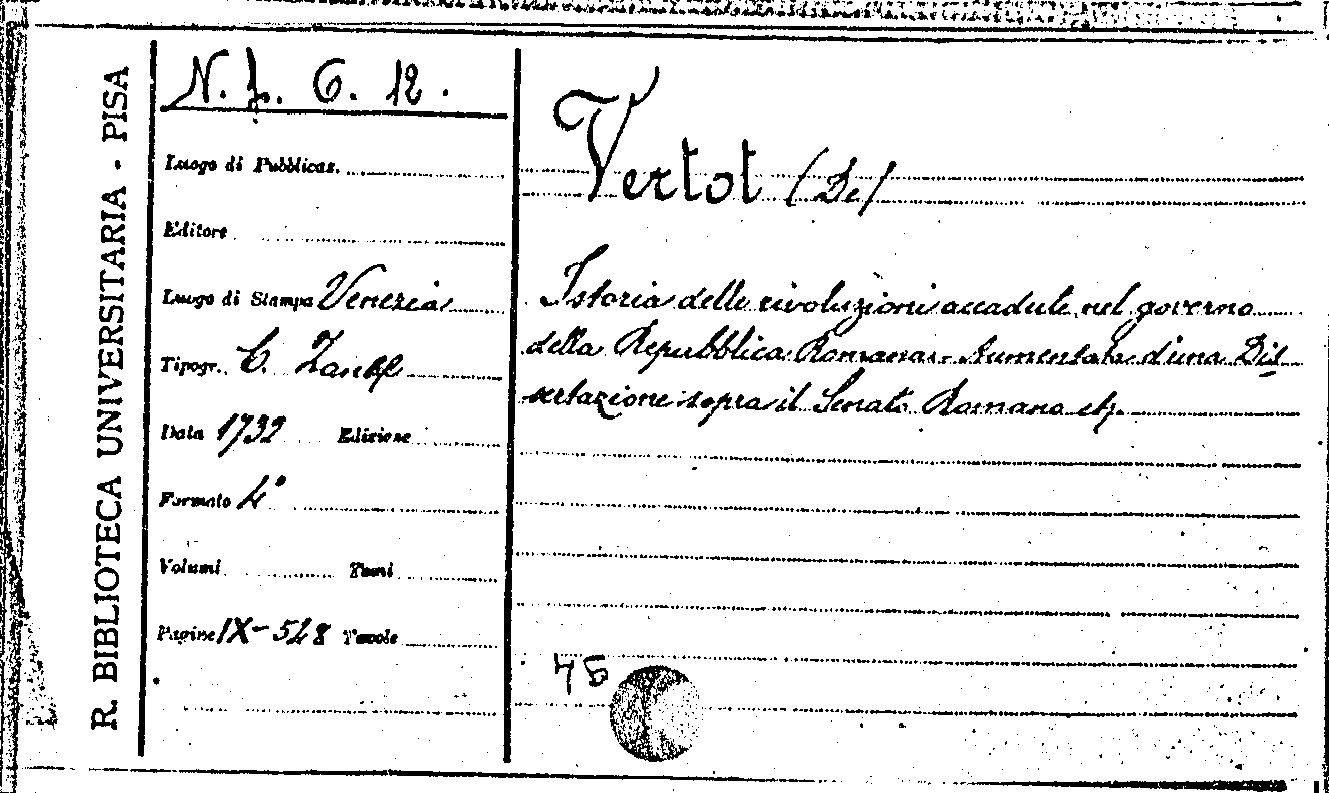 R. BIBLIOTECA UNIVERSITARIA - PISA
N. f. 6. 12.
Luogo di Pubblicaz.
Editore
Luogo di Stampa Venezia
Tipogr. C. Zane
Data 1732 Edizione
Formato 4°
Volumi Tomi
Pagine IX-528 Tavole
Vertot (De)
Istoria delle rivoluzioni accadute nel governo
della Repubblica Romana. - Aumentata d'una Dis
sertazione sopra il Senato Romano etc.
45